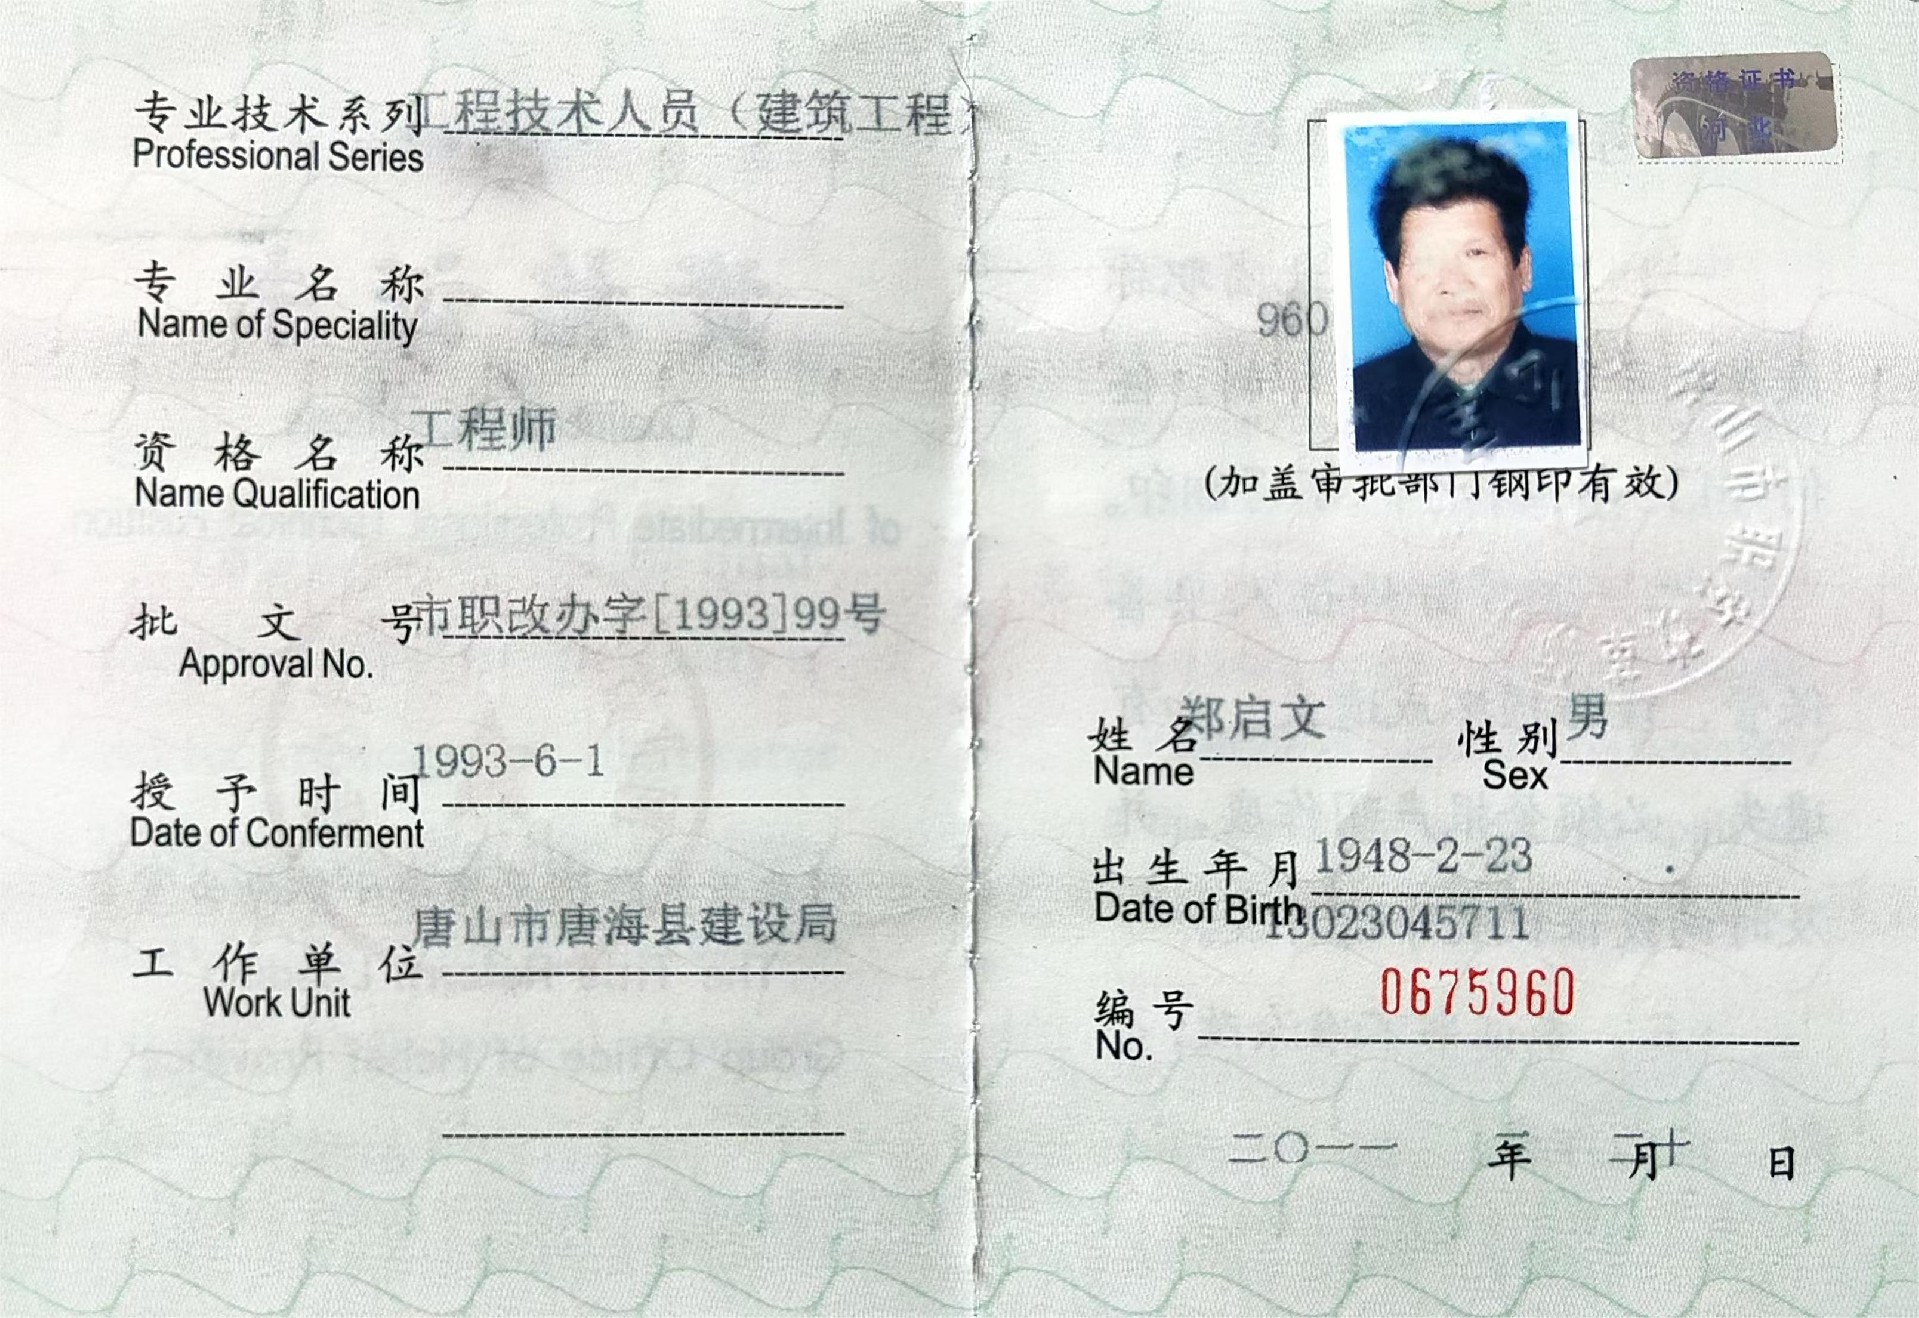 专业技术系列 工程技术人员（建筑工程）
Professional Series
专业名称
Name of Speciality
资格名称 工程师
Name Qualification
批文号 市职改办字[1993]99号
Approval No.
授予时间 1993-6-1
Date of Conferment
工作单位 唐山市唐海县建设局
Work Unit
资格证书
河北
960
(加盖审批部门钢印有效)
姓名 郑启文 性别 男
Name Sex
出生年月 1948-2-23
Date of Birth
13023045711
0675960
编号
No.
二〇一一 年 三 月 二十 日